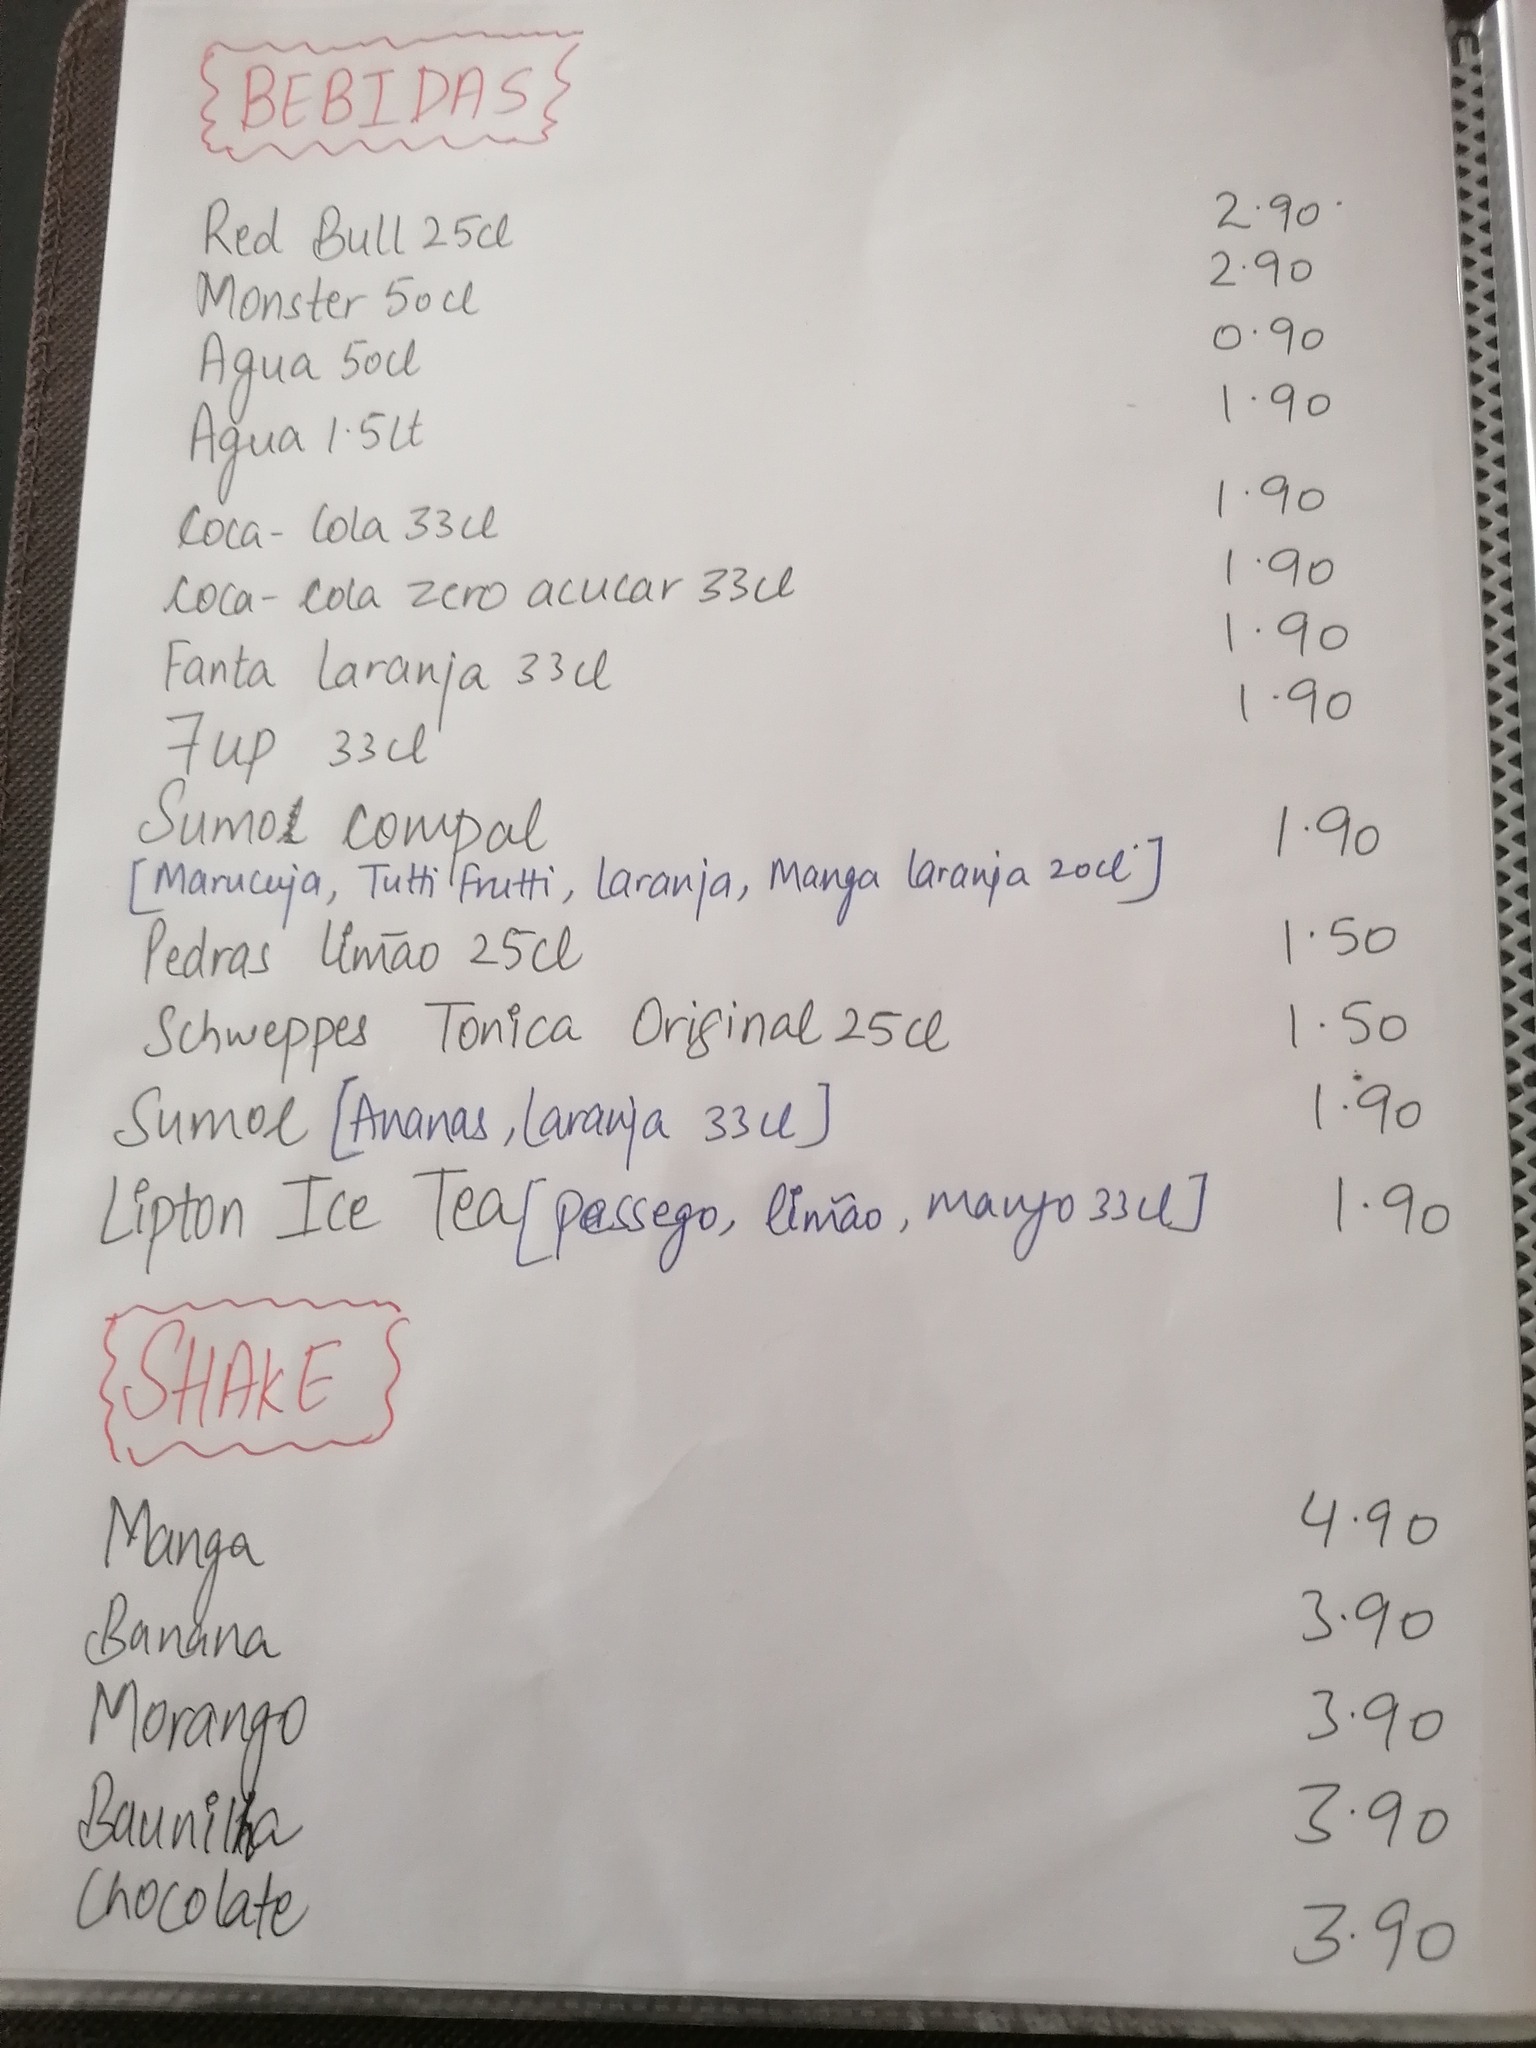 BEBIDAS
Red Bull 25cl 2.90
Monster 50cl 2.90
Agua 50cl 0.90
Agua 1.5Lt 1.90
Coca-Cola 33cl 1.90
Coca-cola zero acucar 33cl 1.90
Fanta Laranja 33cl 1.90
7up 33cl 1.90
Sumol compal 1.90
[Marucuja, Tutti frutti, Laranja, Manga laranja 20cl]
Pedras limão 25cl 1.50
Schweppes Tonica Original 25cl 1.50
Sumol [Ananas, Laranja 33cl] 1.90
Lipton Ice Tea [Pessego, limão, mango 33cl] 1.90
SHAKE
Manga 4.90
Banana 3.90
Morango 3.90
Baunilha 3.90
Chocolate 3.90